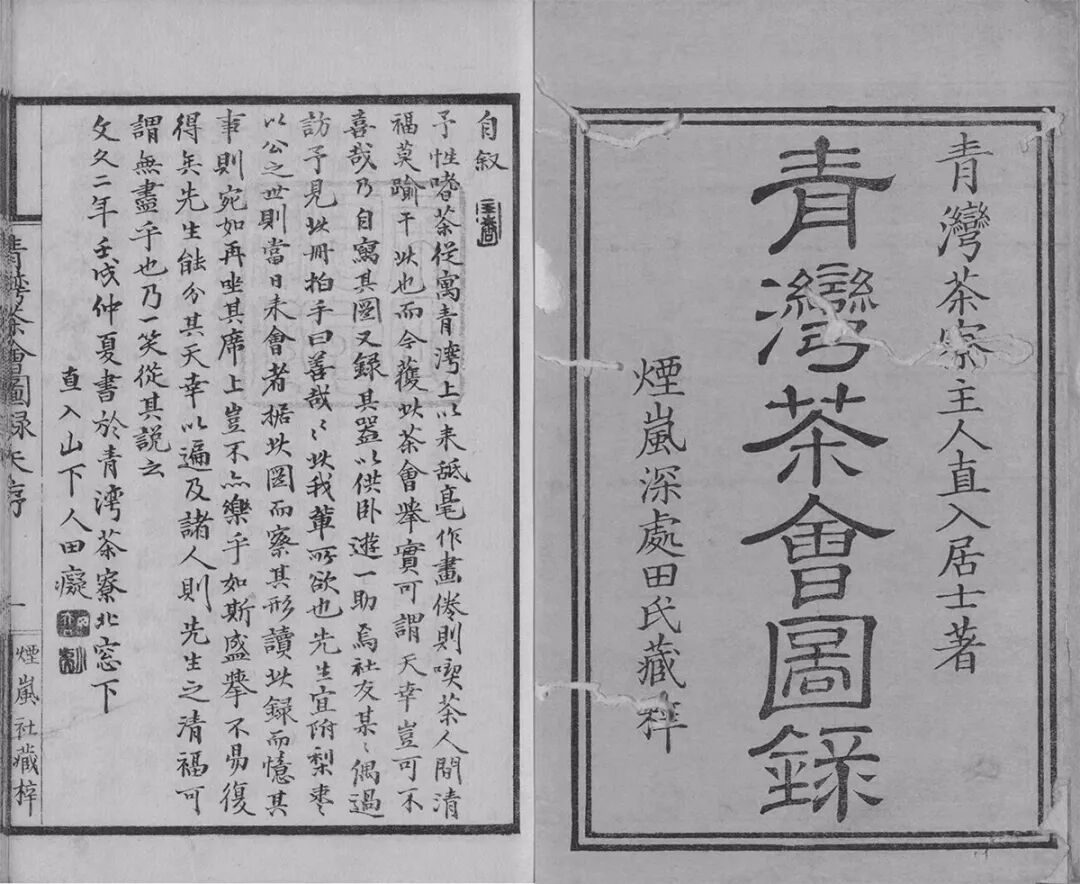 青灣茶寮主人直入居士著
青灣茶會圖錄
煙嵐深處田氏藏梓
自叙
予性嗜茶從寓青灣上以来舐毫作畫倦則喫茶人間清
福莫踰于此也而今獲此茶會舉實可謂天幸豈可不
喜哉乃自寫其圖又録其器以供卧遊一助焉社友某〻偶過
訪予見此册拍手曰善哉〻此我輩所欲也先生宜附梨枣
以公之世則當日未會者据此圖而察其形讀此録而憶其
事則宛如再坐其席上豈不亦樂乎如斯盛舉不易復
得矣先生能分其天幸以遍及諸人則先生之清福可
謂無盡乎也乃一笑從其説云
文久二年壬戌仲夏書於青湾茶寮北窓下
直入山下人田癡
青灣茶會圖録天序
一
煙嵐社藏梓